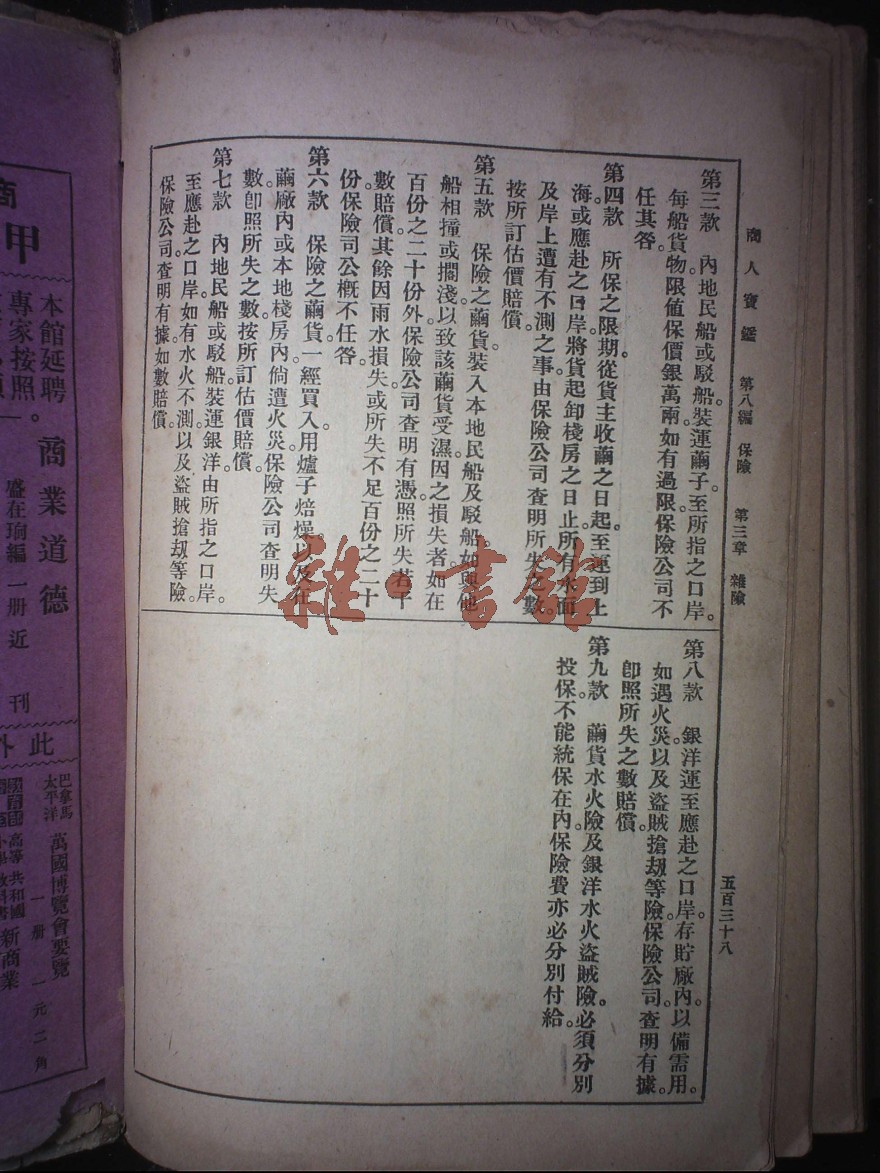 商人寶鑑 第八編 保險 第三章 雜險
五百三十八
第三款　內地民船或駁船。裝運繭子。至所指之口岸。
每船貨物限值保價銀萬兩如有過限。保險公司不
任其咎。
第四款　所保之限期。從貨主收繭之日起。至運到上
海。或應赴之口岸。將貨起卸棧房之日止。所有水面
及岸上遭有不測之事。由保險公司查明所失之數。
按所訂估價賠償。
第五款　保險之繭貨。裝入本地民船及駁船。如與他
船相撞或擱淺。以致該繭貨受濕。因之損失者。如在
百份之二十份外。保險公司查明有憑。照所失若干
數賠償。其餘因雨水損失。或所失不足百份之二十
份。保險司公概不任咎。
第六款　保險之繭貨。一經買入。用爐子焙燥。以及在
繭廠內或本地棧房內。倘遭火災。保險公司查明失
數。卽照所失之數。按所訂估價賠償。
第七款　內地民船或駁船。裝運銀洋。由所指之口岸。
至應赴之口岸。如有水火不測。以及盜賊搶刼等險。
保險公司。查明有據。如數賠償。
第八款　銀洋運至應赴之口岸。存貯廠內。以備需用。
如遇火災。以及盜賊搶刼等險。保險公司。查明有據。
卽照所失之數賠償。
第九款　繭貨水火險。及銀洋水火盜賊險。必須分別
投保。不能統保在內。保險費亦必分別付給。
雜·書館
商
甲
本館延聘
專家按照
商業道德
盛在珦編 一册 近刊
此外
巴拿馬
太平洋
萬國博覽會要覽
一册 一元二角
高等
共和國
新商業